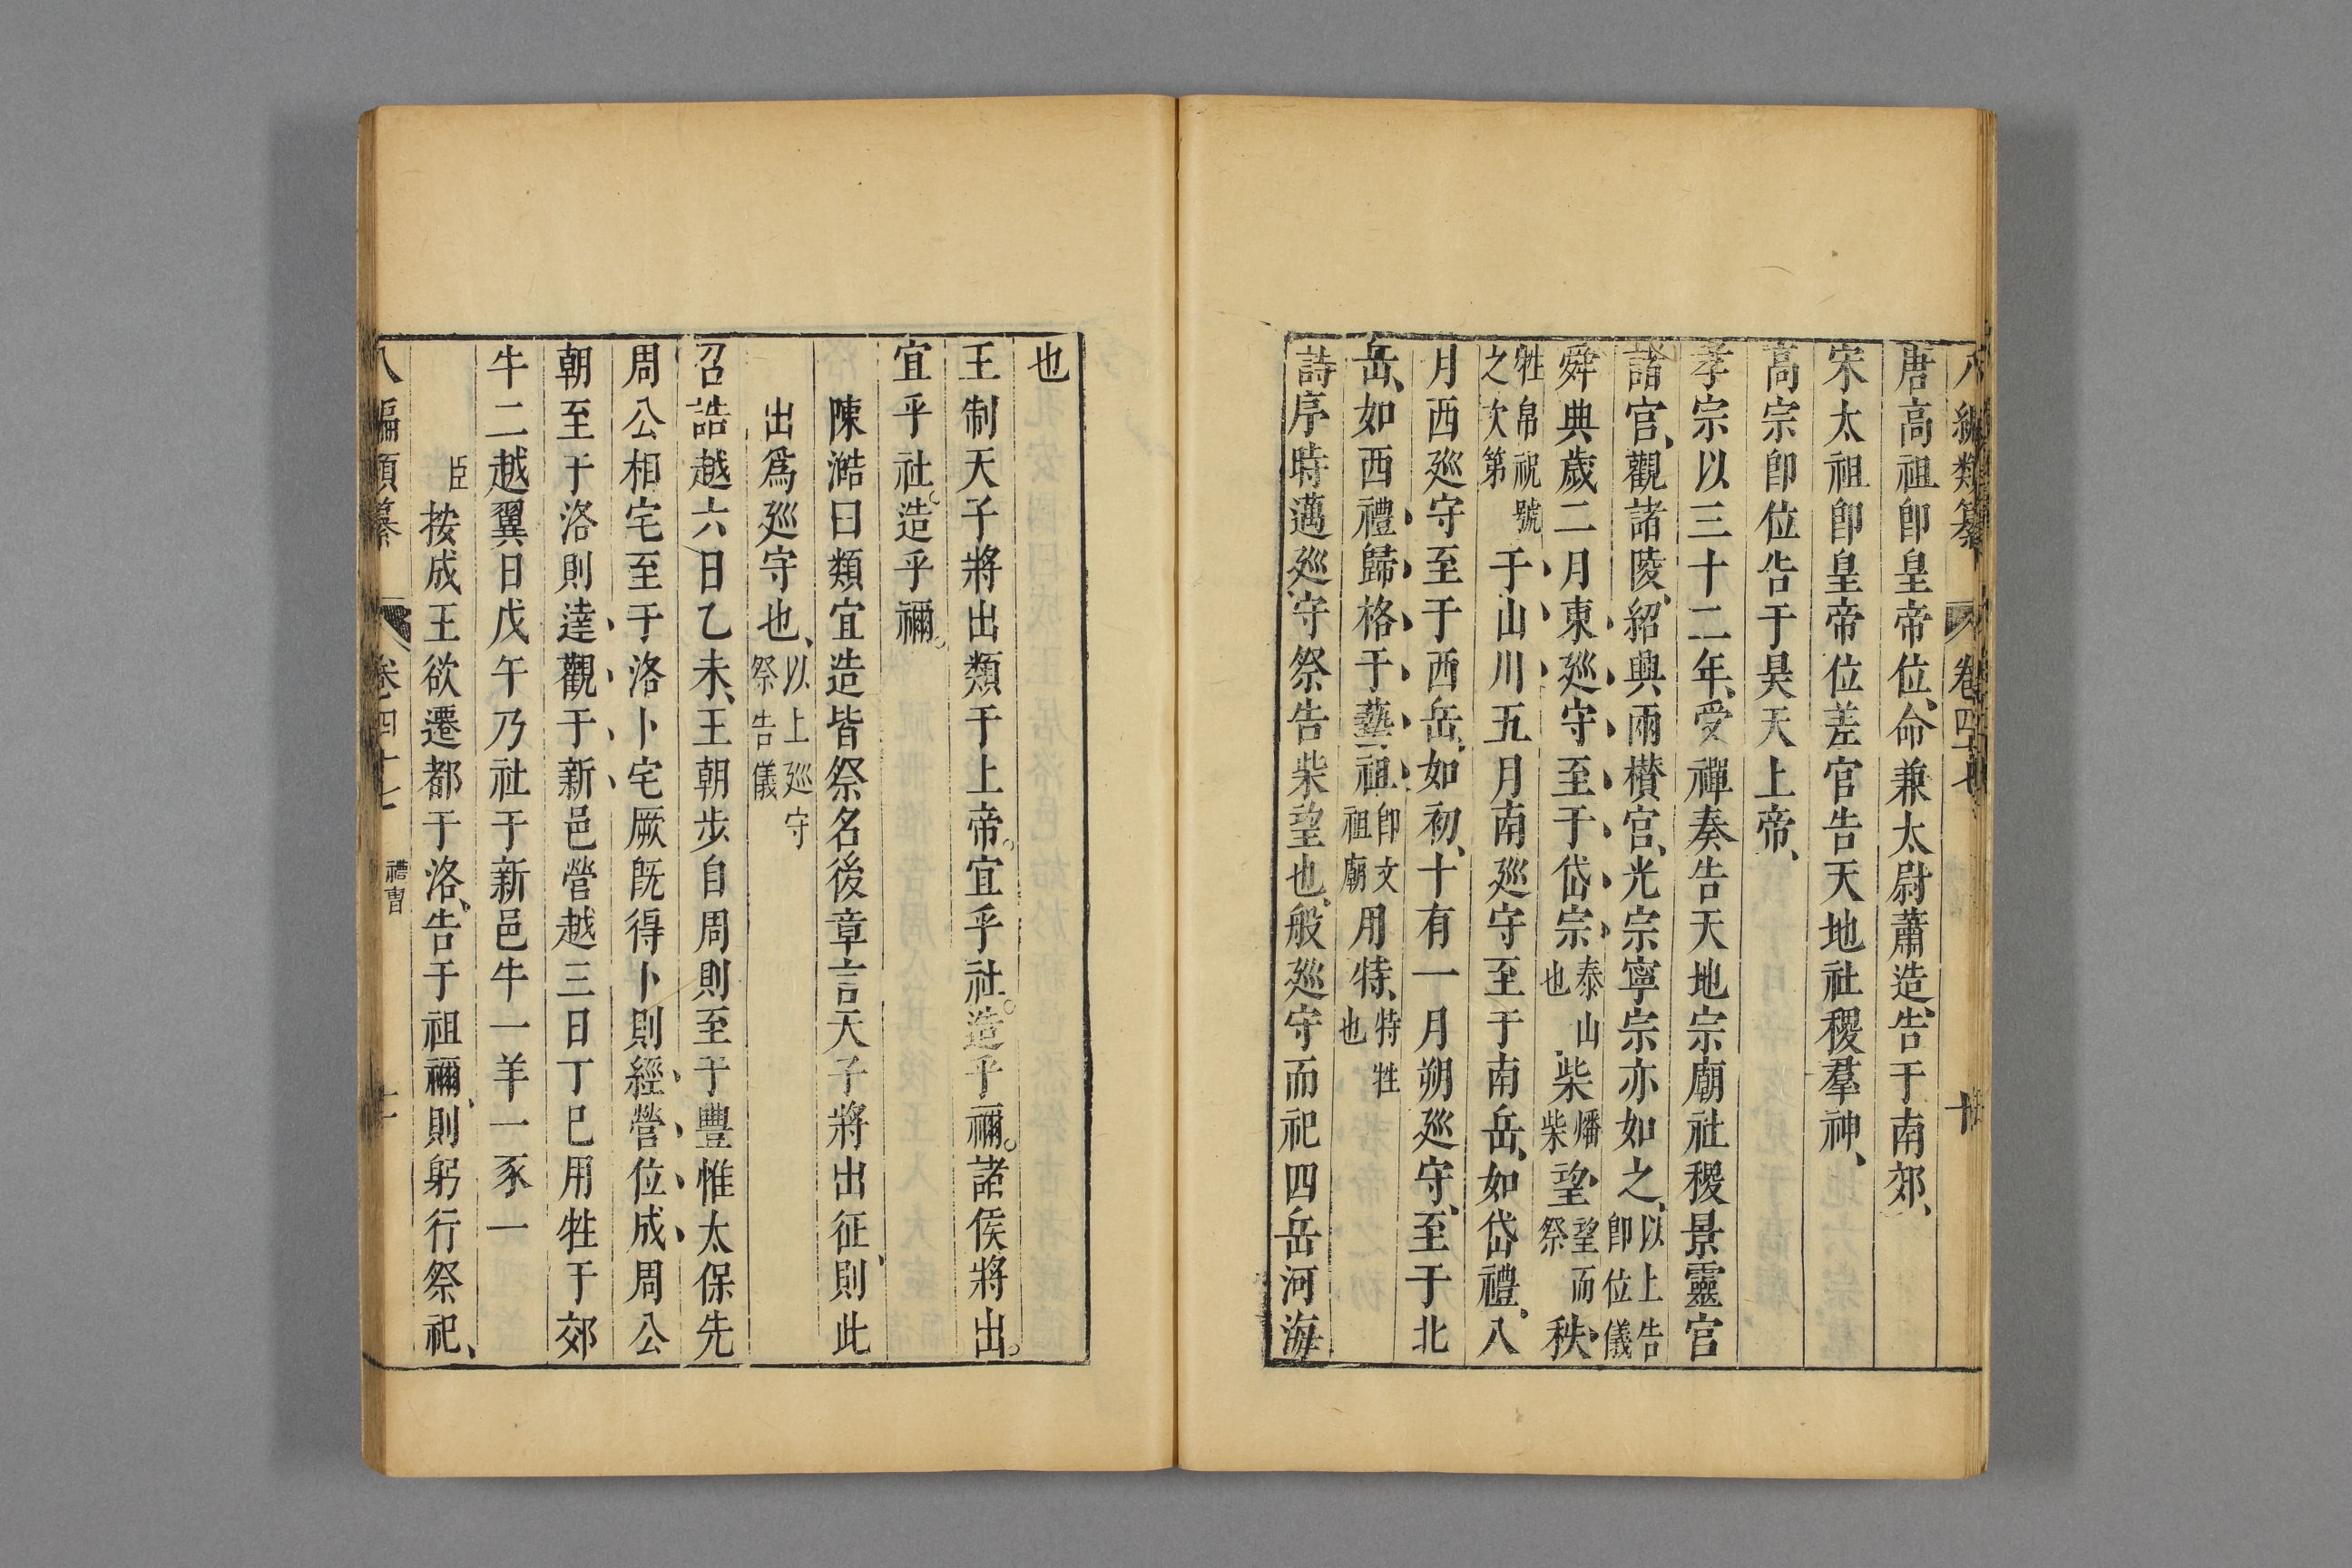 八編類纂 卷四十七
唐高祖卽皇帝位、命兼太尉蕭造、告于南郊、
宋太祖卽皇帝位差官告天地社稷羣神、
高宗卽位告于昊天上帝、
孝宗以三十二年、受禪奏告天地宗廟社稷景靈宮
諸官、觀諸陵、紹興兩欑官、光宗寧宗亦如之、以上告卽位儀
舜典歲二月東廵守至于岱宗泰山也柴燔柴望望而祭秩
牲帛祝號之次第于山川五月南廵守至于南岳、如岱禮。八
月西廵守至于西岳、如初、十有一月朔廵守、至于北
岳、如西禮歸格于藝祖卽文祖廟用特、特牲也
詩序時邁廵守祭告柴望也、般廵守而祀四岳河海
也
王制天子將出類于上帝。宜乎社。造乎禰。諸侯將出。
宜乎社。造乎禰。
陳澔曰類宜造皆祭名後章言天子將出征、則此
出爲廵守也、以上廵守祭告儀
召誥越六日乙未、王朝步自周則至于豐惟太保先
周公相宅至于洛卜宅厥旣得卜則經營位成周公
朝至于洛則達觀于新邑營越三日丁巳用牲于郊
牛二越翼日戊午乃社于新邑牛一羊一豕一
臣按成王欲遷都于洛、告于祖禰、則躬行祭祀、
八編類纂 卷四十七 禮曹